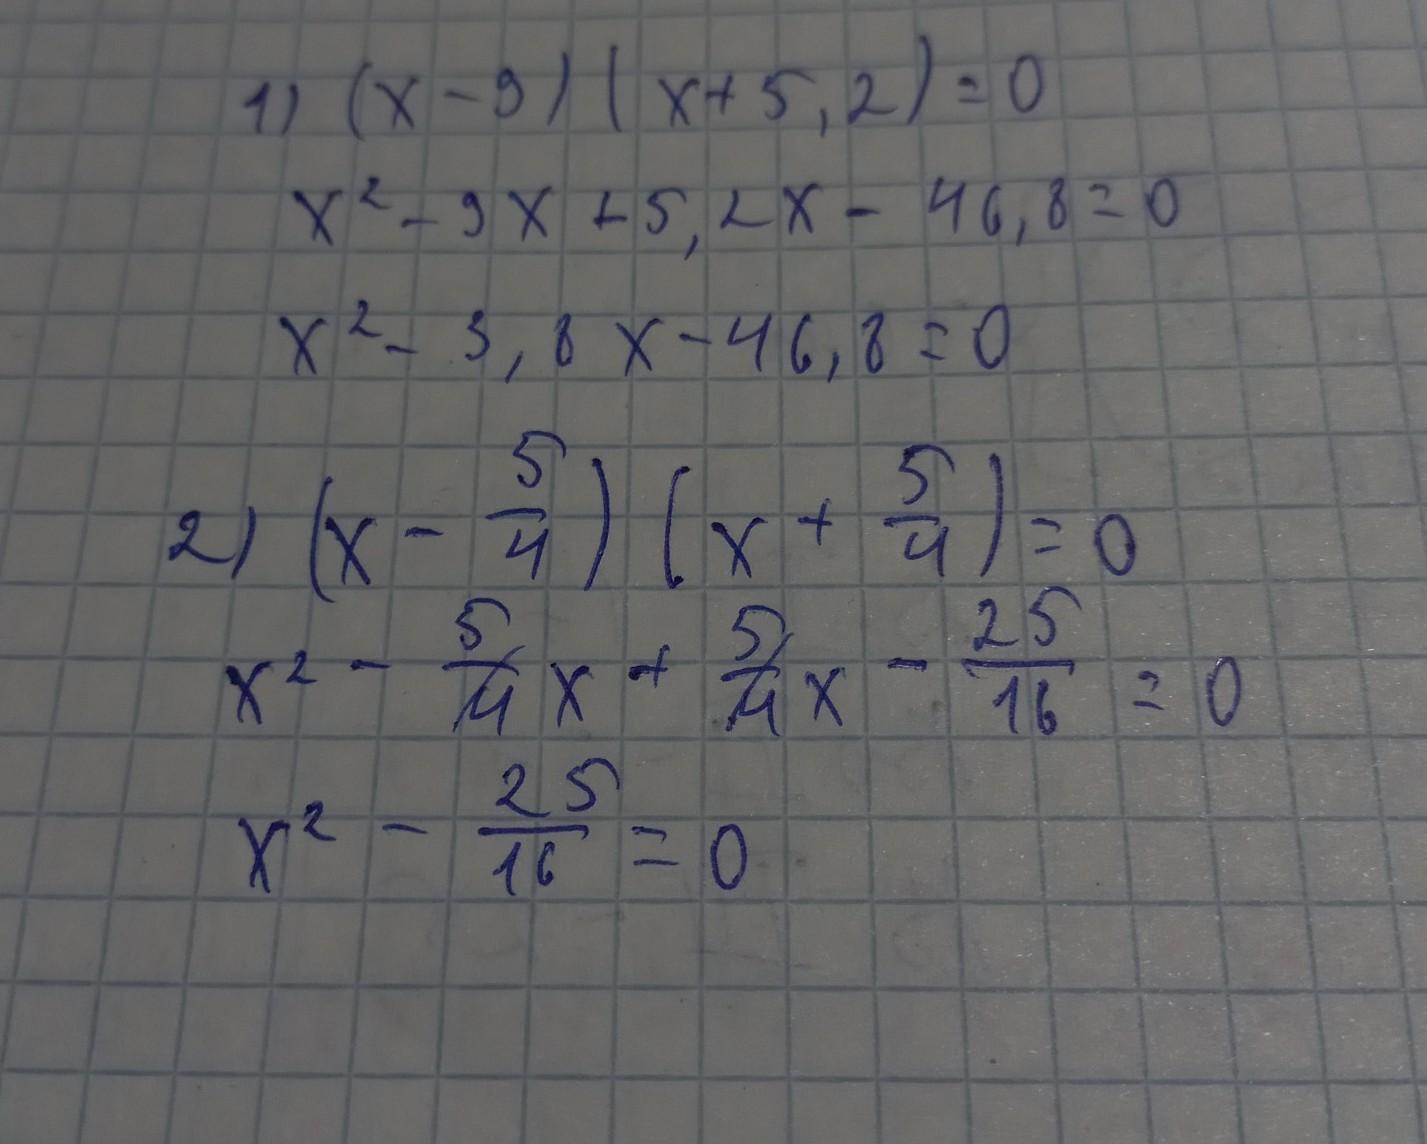 1) (x - 9) (x + 5,2) = 0
x² - 9x + 5,2x - 46,8 = 0
x² - 3,8x - 46,8 = 0
2) (x - 5/4) (x + 5/4) = 0
x² - 5/4 x + 5/4 x - 25/16 = 0
x² - 25/16 = 0